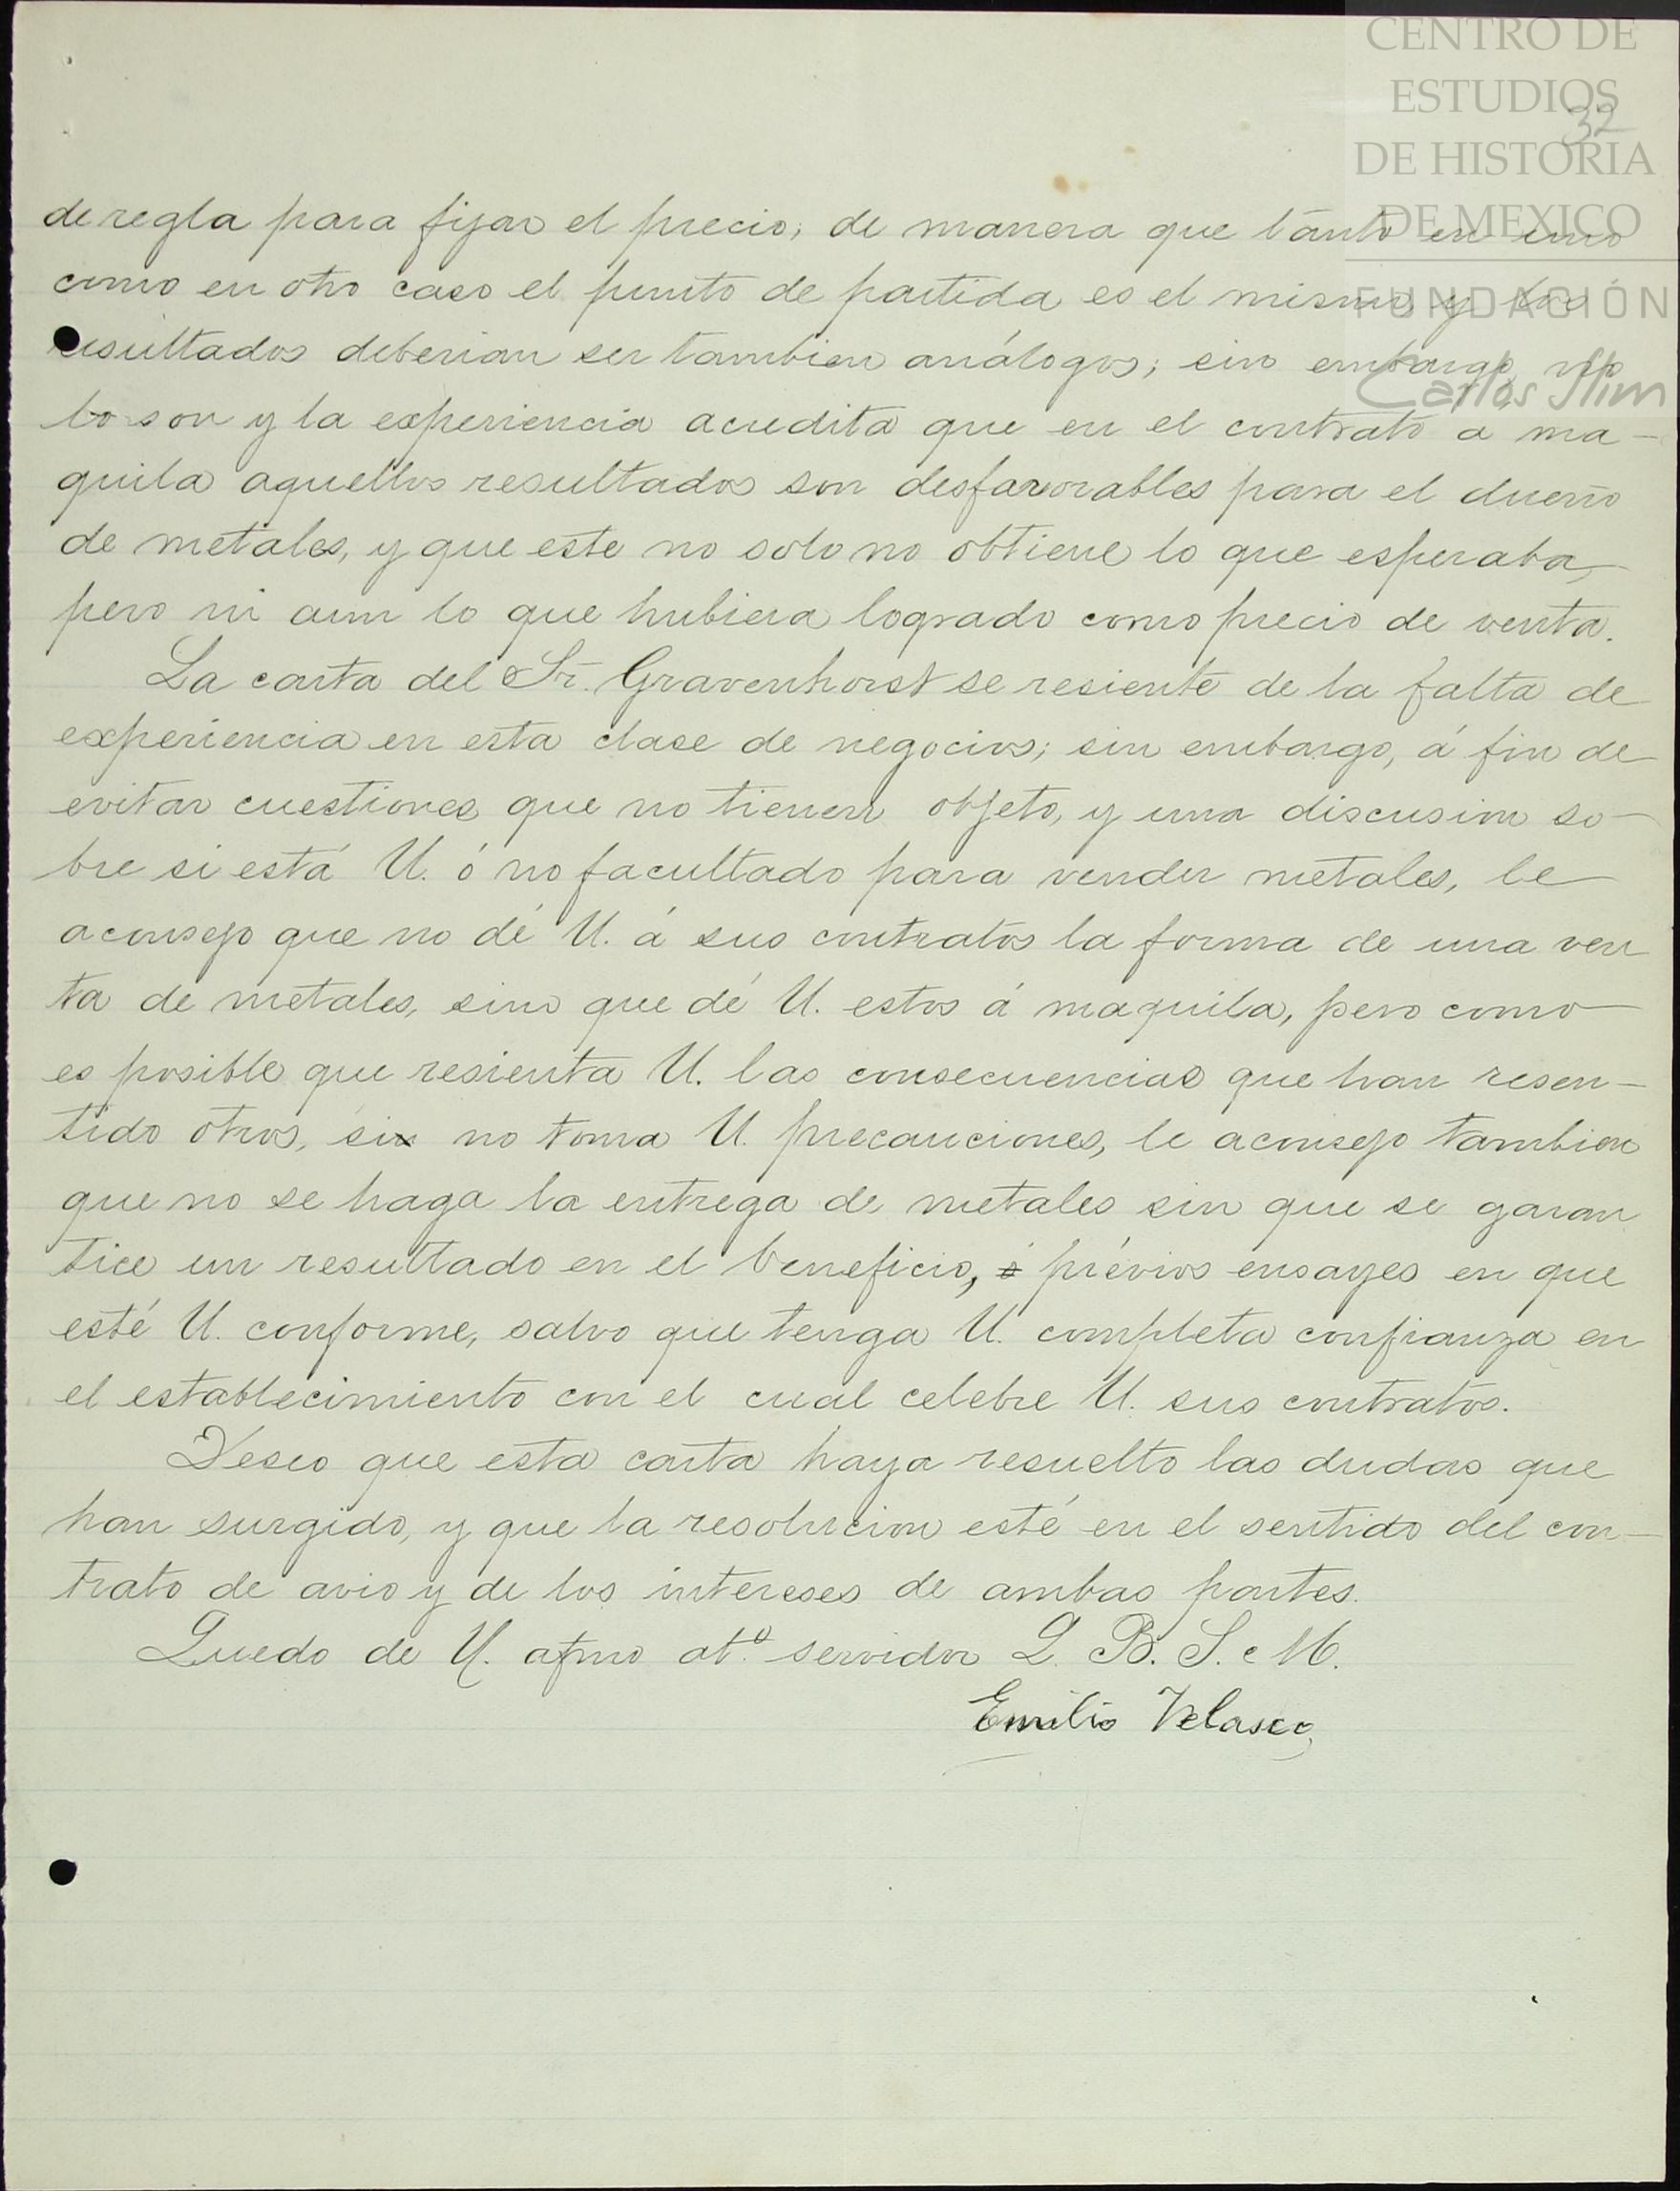 CENTRO DE
ESTUDIOS
32
DE HISTORIA
DE MEXICO
FUNDACIÓN
Carlos Slim
de regla para fijar el precio; de manera que tanto en uno
como en otro caso el punto de partida es el mismo, y los
resultados deberian ser tambien análogos; sin embargo, no
lo son y la experiencia acredita que en el contrato a ma-
quila aquellos resultados son desfavorables para el dueño
de metales, y que este no solo no obtiene lo que esperaba,
pero ni aun lo que hubiera logrado como precio de venta.
La carta del Sr. Gravenhorst se resiente de la falta de
experiencia en esta clase de negocios; sin embargo, á fin de
evitar cuestiones que no tienen objeto, y una discusion so-
bre si está U. ó no facultado para vender metales, le
aconsejo que no dé U. á sus contratos la forma de una ven
ta de metales, sino que dé U. estos á maquila, pero como
es posible que resienta U. las consecuencias que han resen-
tido otros, si no toma U. precauciones, le aconsejo tambien
que no se haga la entrega de metales sin que se garan
tice un resultado en el beneficio, prévios ensayes en que
esté U. conforme, salvo que tenga U. completa confianza en
el establecimiento con el cual celebre U. sus contratos.
Deseo que esta carta haya resuelto las dudas que
han surgido, y que la resolucion esté en el sentido del con-
trato de avio y de los intereses de ambas partes.
Quedo de U. afmo at.º servidor Q. B. S. M.
Emilio Velasco